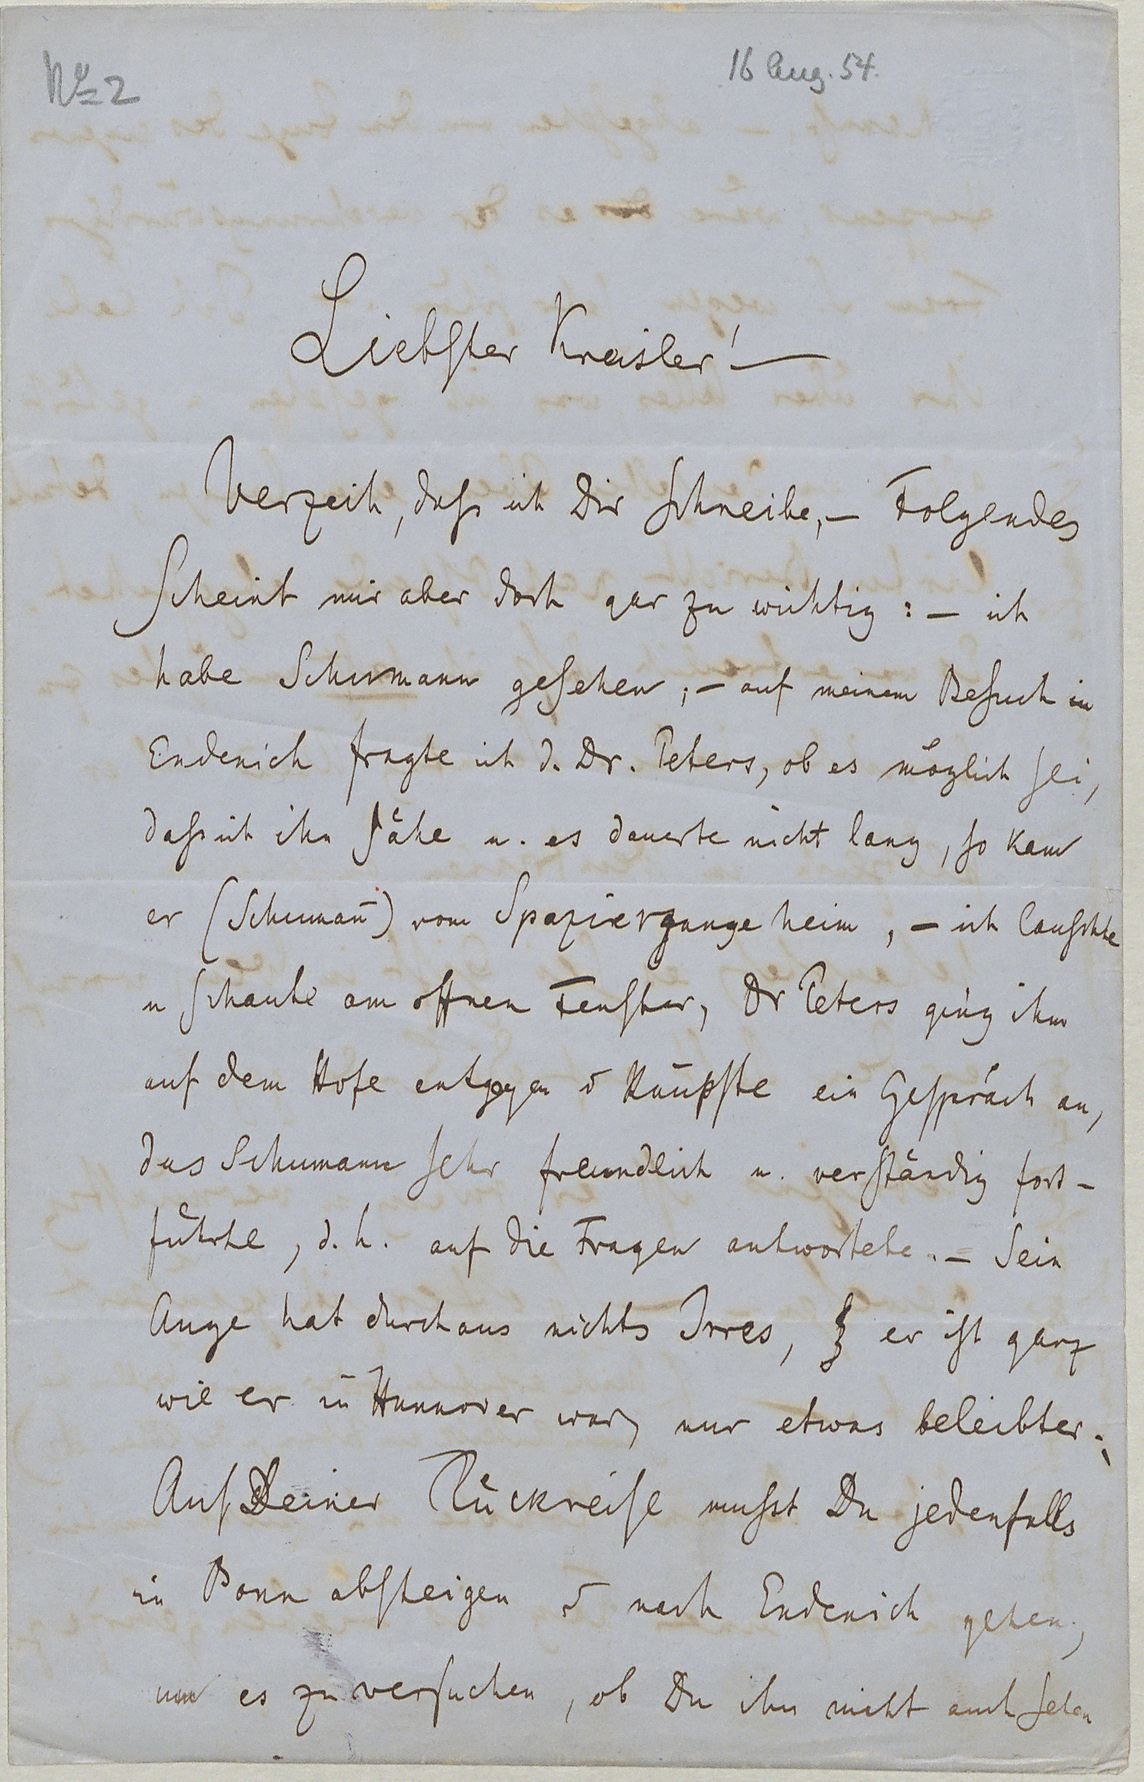 No 2
16 Aug. 54.
Liebster Kreisler! —
Verzeih, daß ich Dir schreibe, — Folgendes
scheint mir aber doch gar zu wichtig: — ich
habe Schumann gesehen; — auf meinem Besuch in
Endenich fragte ich d. Dr. Peters, ob es möglich sei,
daß ich ihn sähe u. es dauerte nicht lang, so kam
er (Schuman̄) vom Spaziergange heim, — ich lauschte
u schaute am offnen Fenster, Dr Peters ging ihm
auf dem Hofe entgegen u knüpfte ein Gespräch an,
das Schumann sehr freundlich u. verständig fort-
führte, d. h. auf die Fragen antwortete. — Sein
Auge hat durchaus nichts Irres, er ist ganz
wie er in Hannover war, nur etwas beleibter.;
Auf Deiner Rückreise mußt Du jedenfalls
in Bonn absteigen u nach Endenich gehen,
um es zu versuchen, ob Du ihn nicht auch sehen